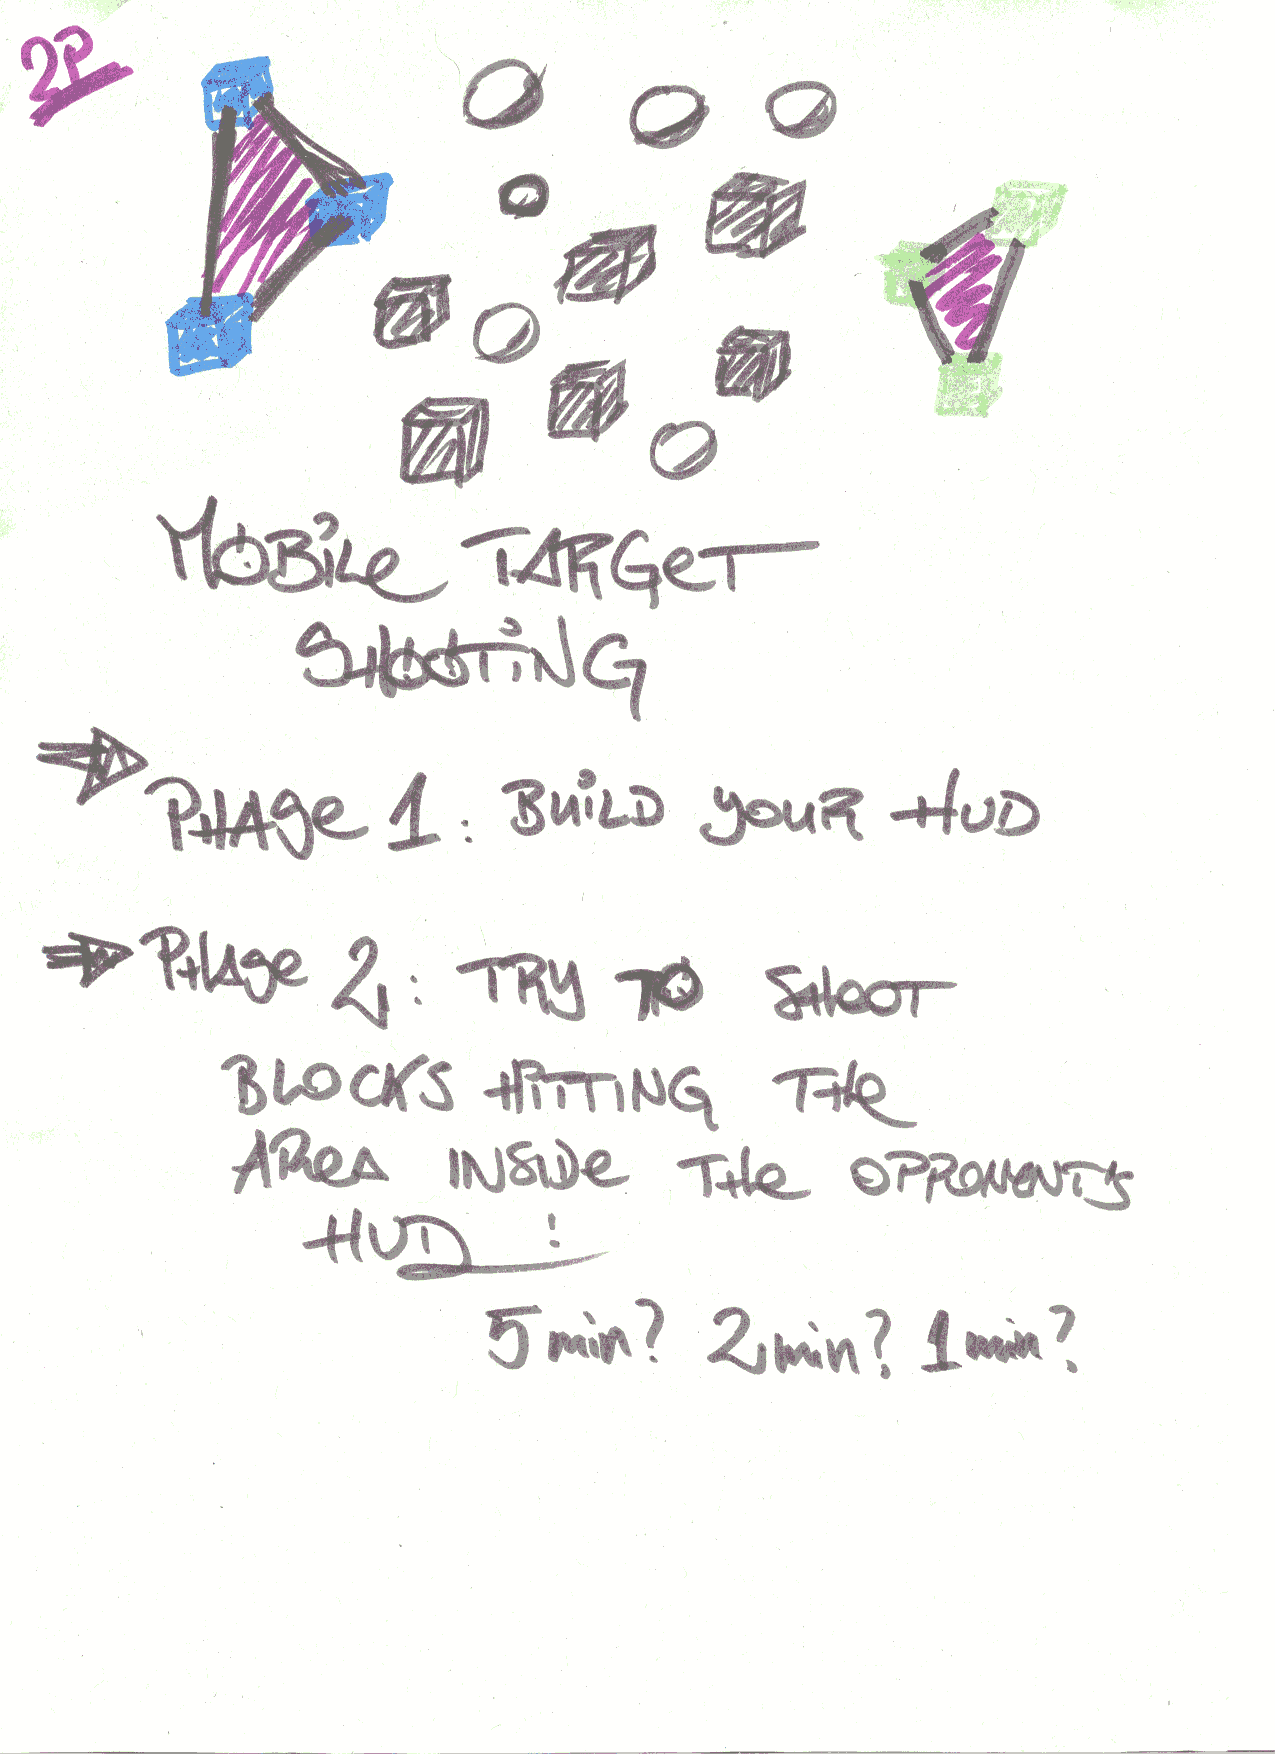 2P
MOBiLe TARGeT
SHOOTiNG
PHAge 1: BUiLD YOUR HUD
PHAge 2: TRY TO SHOOT
BLOCKS HITTING THe
AReA INSiDe THe OPPONENT'S
HUD!
5 min? 2 min? 1 min?